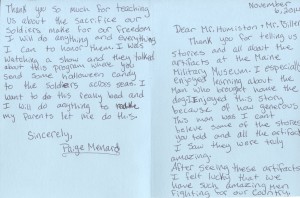 November
6, 201
Dear Mr. Humiston + Mr.
Thank you for telling us
stories and all about the
artifacts at the Maine
Military Museum. I especially
enjoyed learning about the
Man who brought home the
dog. I enjoyed this story
because of how generous
this man was. I can't
believe some of the stories
you told and all the artifacts
I saw they were truly
amazing.
After seeing these artifacts
I felt lucky that we
have such amazing men
fighting for our country.
Thank you so much for teaching
us about the sacrifice our
Soldiers make for our Freedom
I will do anything and everything
I can to honor them. I was
Watching a show and they talked
about this program where you
send some halloween candy
to the Soldiers across seas. I
want to do this really bad and
I will do anything to make
my parents let me do this.
Sincerely,
Paige Menard